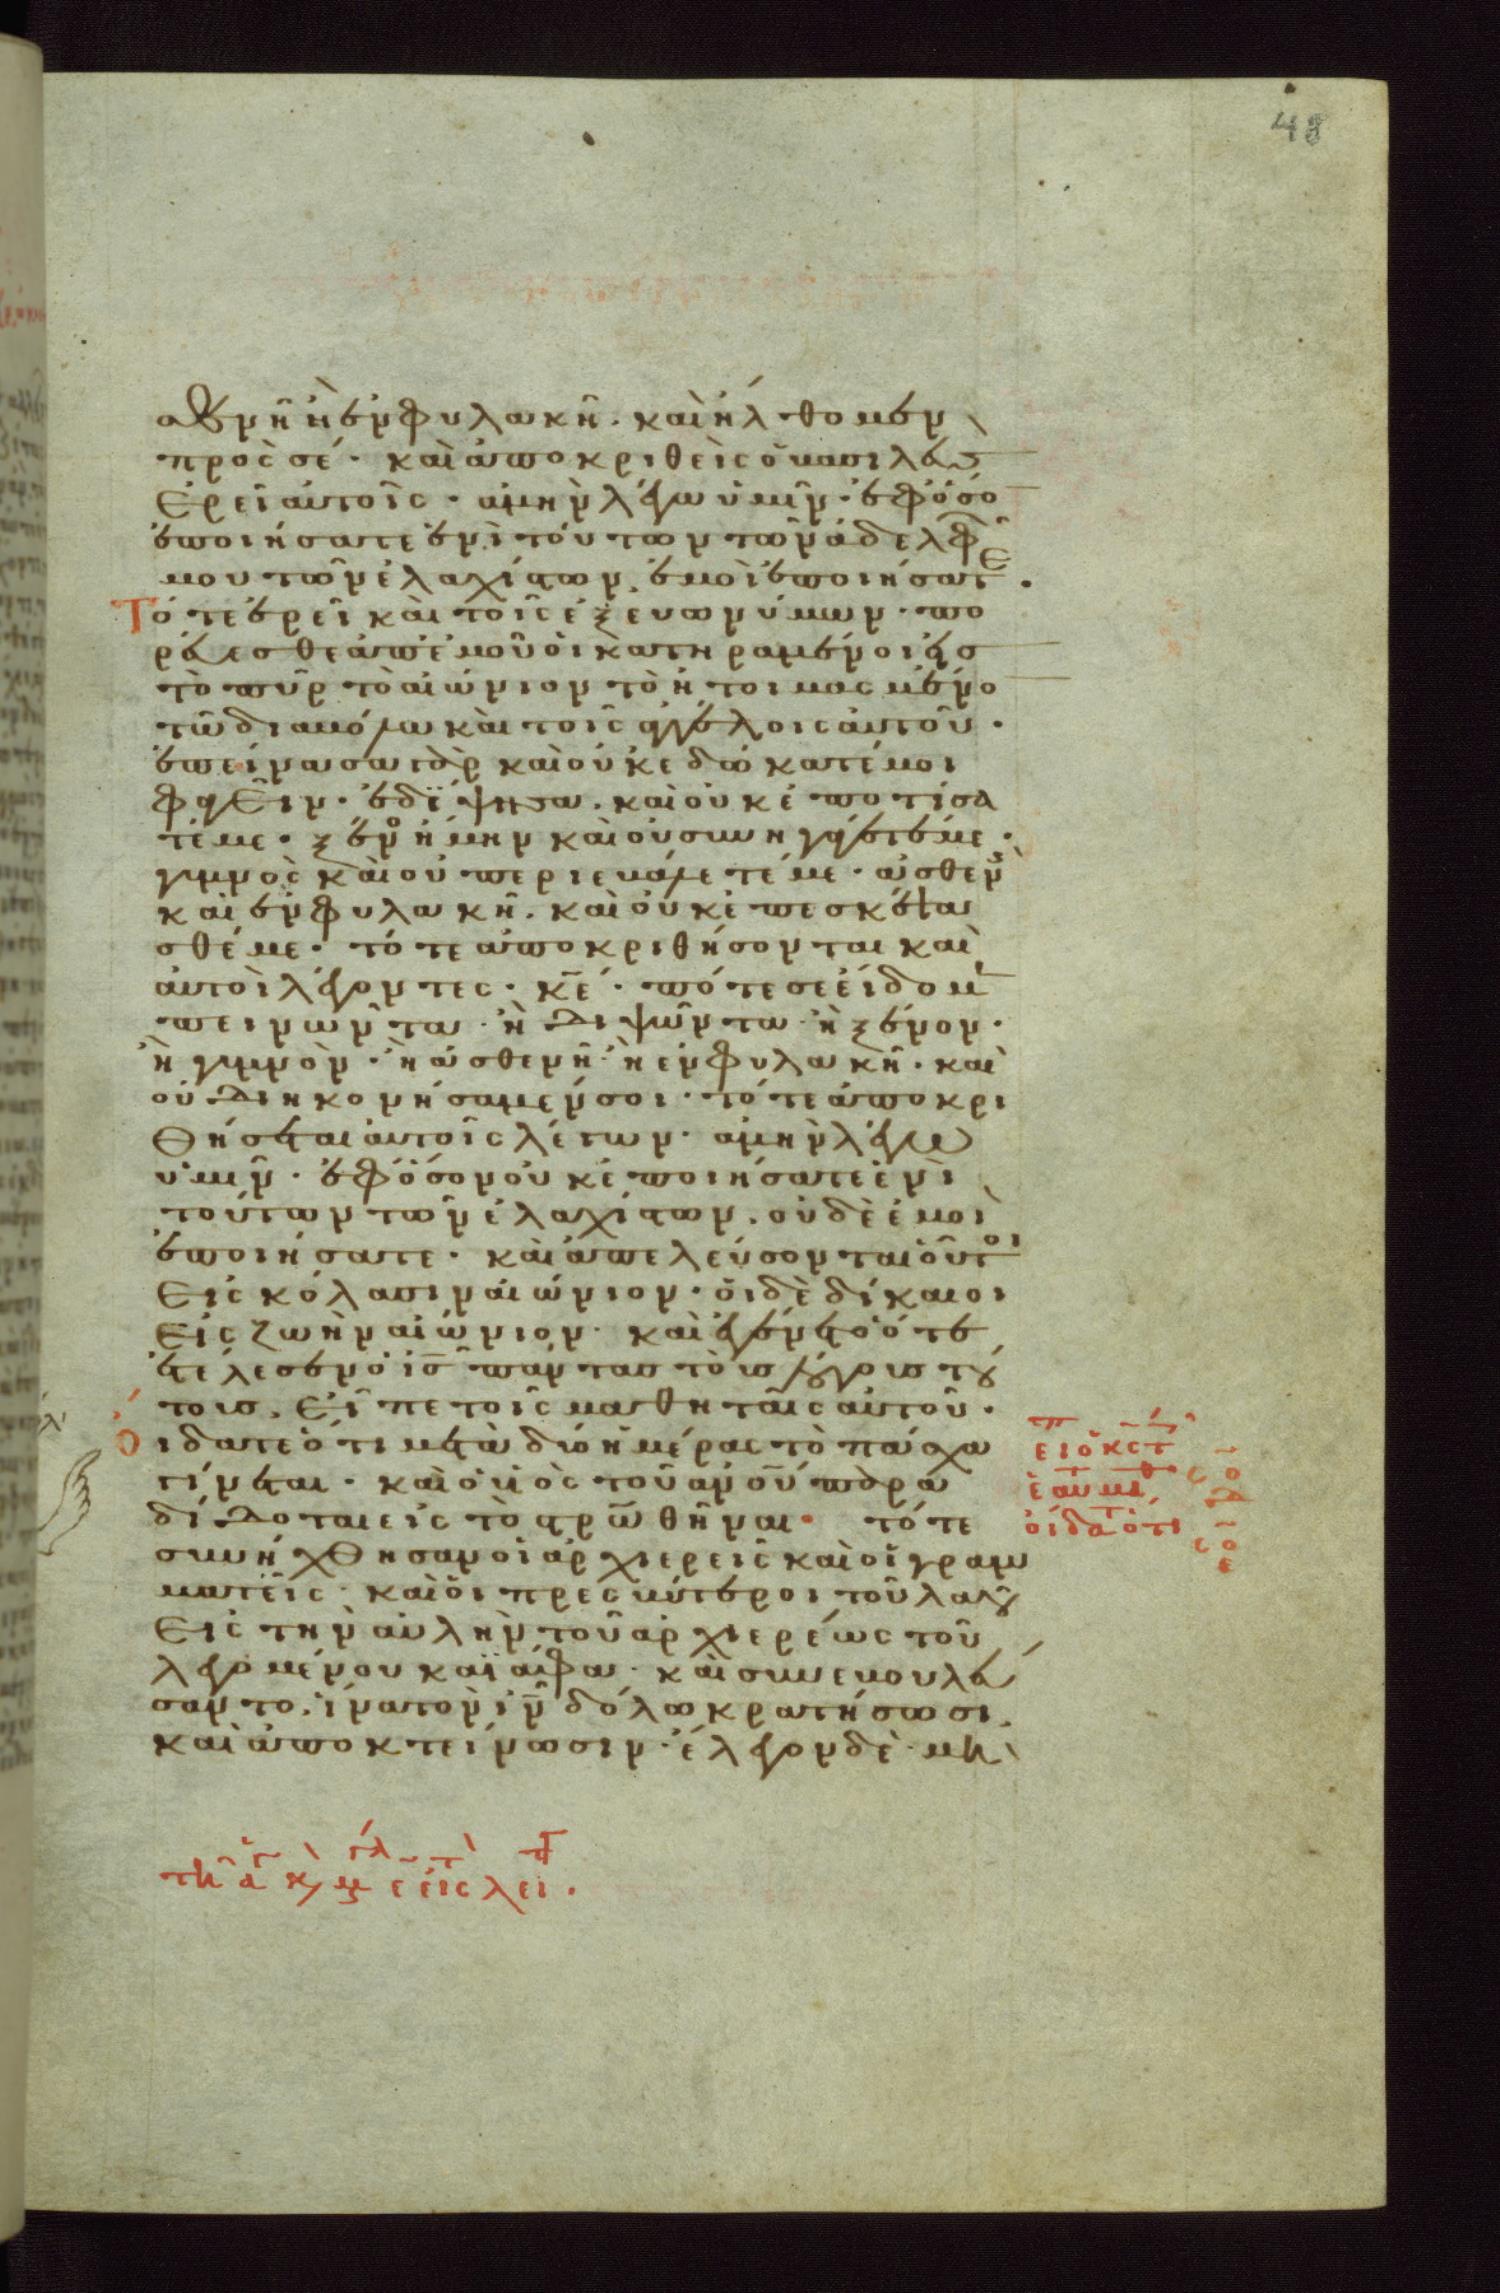 48
σθενῆ ἢ ἐν φυλακῆ. καὶ ἤλθομεν
πρός σέ. καὶ ἀποκριθεὶς ὁ βασιλεὺς
ἐρεῖ αὐτοῖς. ἀμὴν λέγω ὑμῖν. ἐφ ὅσο
ἐποιήσατε ἑνὶ τούτων τῶν ἀδελφῶ
μου τῶν ἐλαχίστων, ἐμοὶ ἐποιήσατε.
Τότε ἐρεῖ καὶ τοῖς ἐξ εὐωνύμων. πο
ρεύεσθε ἀπ ἐμοῦ οἱ κατηραμένοι εἰς
τὸ πῦρ τὸ αἰώνιον τὸ ἡτοιμασμένο
τῶ διαβόλω καὶ τοῖς ἀγγέλοις αὐτοῦ.
ἐπείνασα γὰρ καὶ οὐκ ἐδώκατέ μοι
φαγεῖν. ἐδίψησα. καὶ οὐκ ἐποτίσα
τέ με. ξένος ἤμην καὶ οὐ συνηγάγετέ με.
γυμνὸς καὶ οὐ περιεβάλετέ με. ἀσθενὴς
καὶ ἐν φυλακῆ. καὶ οὐκ ἐπεσκέψα
σθέ με. τότε ἀποκριθήσονται καὶ
αὐτοὶ λέγοντες. κε. πότε σε εἴδομεν
πεινῶντα. ἢ διψῶντα. ἢ ξένον.
ἢ γυμνὸν. ἢ ἀσθενῆ. ἢ ἐν φυλακῆ. καὶ
οὐ διηκονήσαμέν σοι. τότε ἀποκρι
θήσεται αὐτοῖς λέγων. ἀμὴν λέγω
ὑμῖν. ἐφ ὅσον οὐκ ἐποιήσατε ἑνὶ
τούτων τῶν ἐλαχίστων. οὐδὲ ἐμοὶ
ἐποιήσατε. καὶ ἀπελεύσονται οὗτοι
εἰς κόλασιν αἰώνιον. οἱ δὲ δίκαιοι
εἰς ζωὴν αἰώνιον. καὶ ἐγένετο ὅτε
ἐτέλεσεν ὁ ις πάντας τοὺς λόγους τού
τους, εἶπε τοῖς μαθηταῖς αὐτοῦ.
Οἴδατε ὅτι μετὰ δύο ἡμέρας τὸ πάσχα
γίνεται. καὶ ὁ υἱὸς τοῦ ανου παρα
δίδοται εἰς τὸ στρωθῆναι. τότε
συνήχθησαν οἱ ἀρχιερεῖς καὶ οἱ γραμ
ματεῖς. καὶ οἱ πρεσβύτεροι τοῦ λαοῦ
εἰς τὴν αὐλὴν τοῦ ἀρχιερέως τοῦ
λεγομένου καϊάφα. καὶ συνεβουλεύ
σαντο, ἵνα τὸν ιν δόλω κρατήσωσι,
καὶ ἀποκτείνωσιν. ἔλεγον δὲ. μὴ